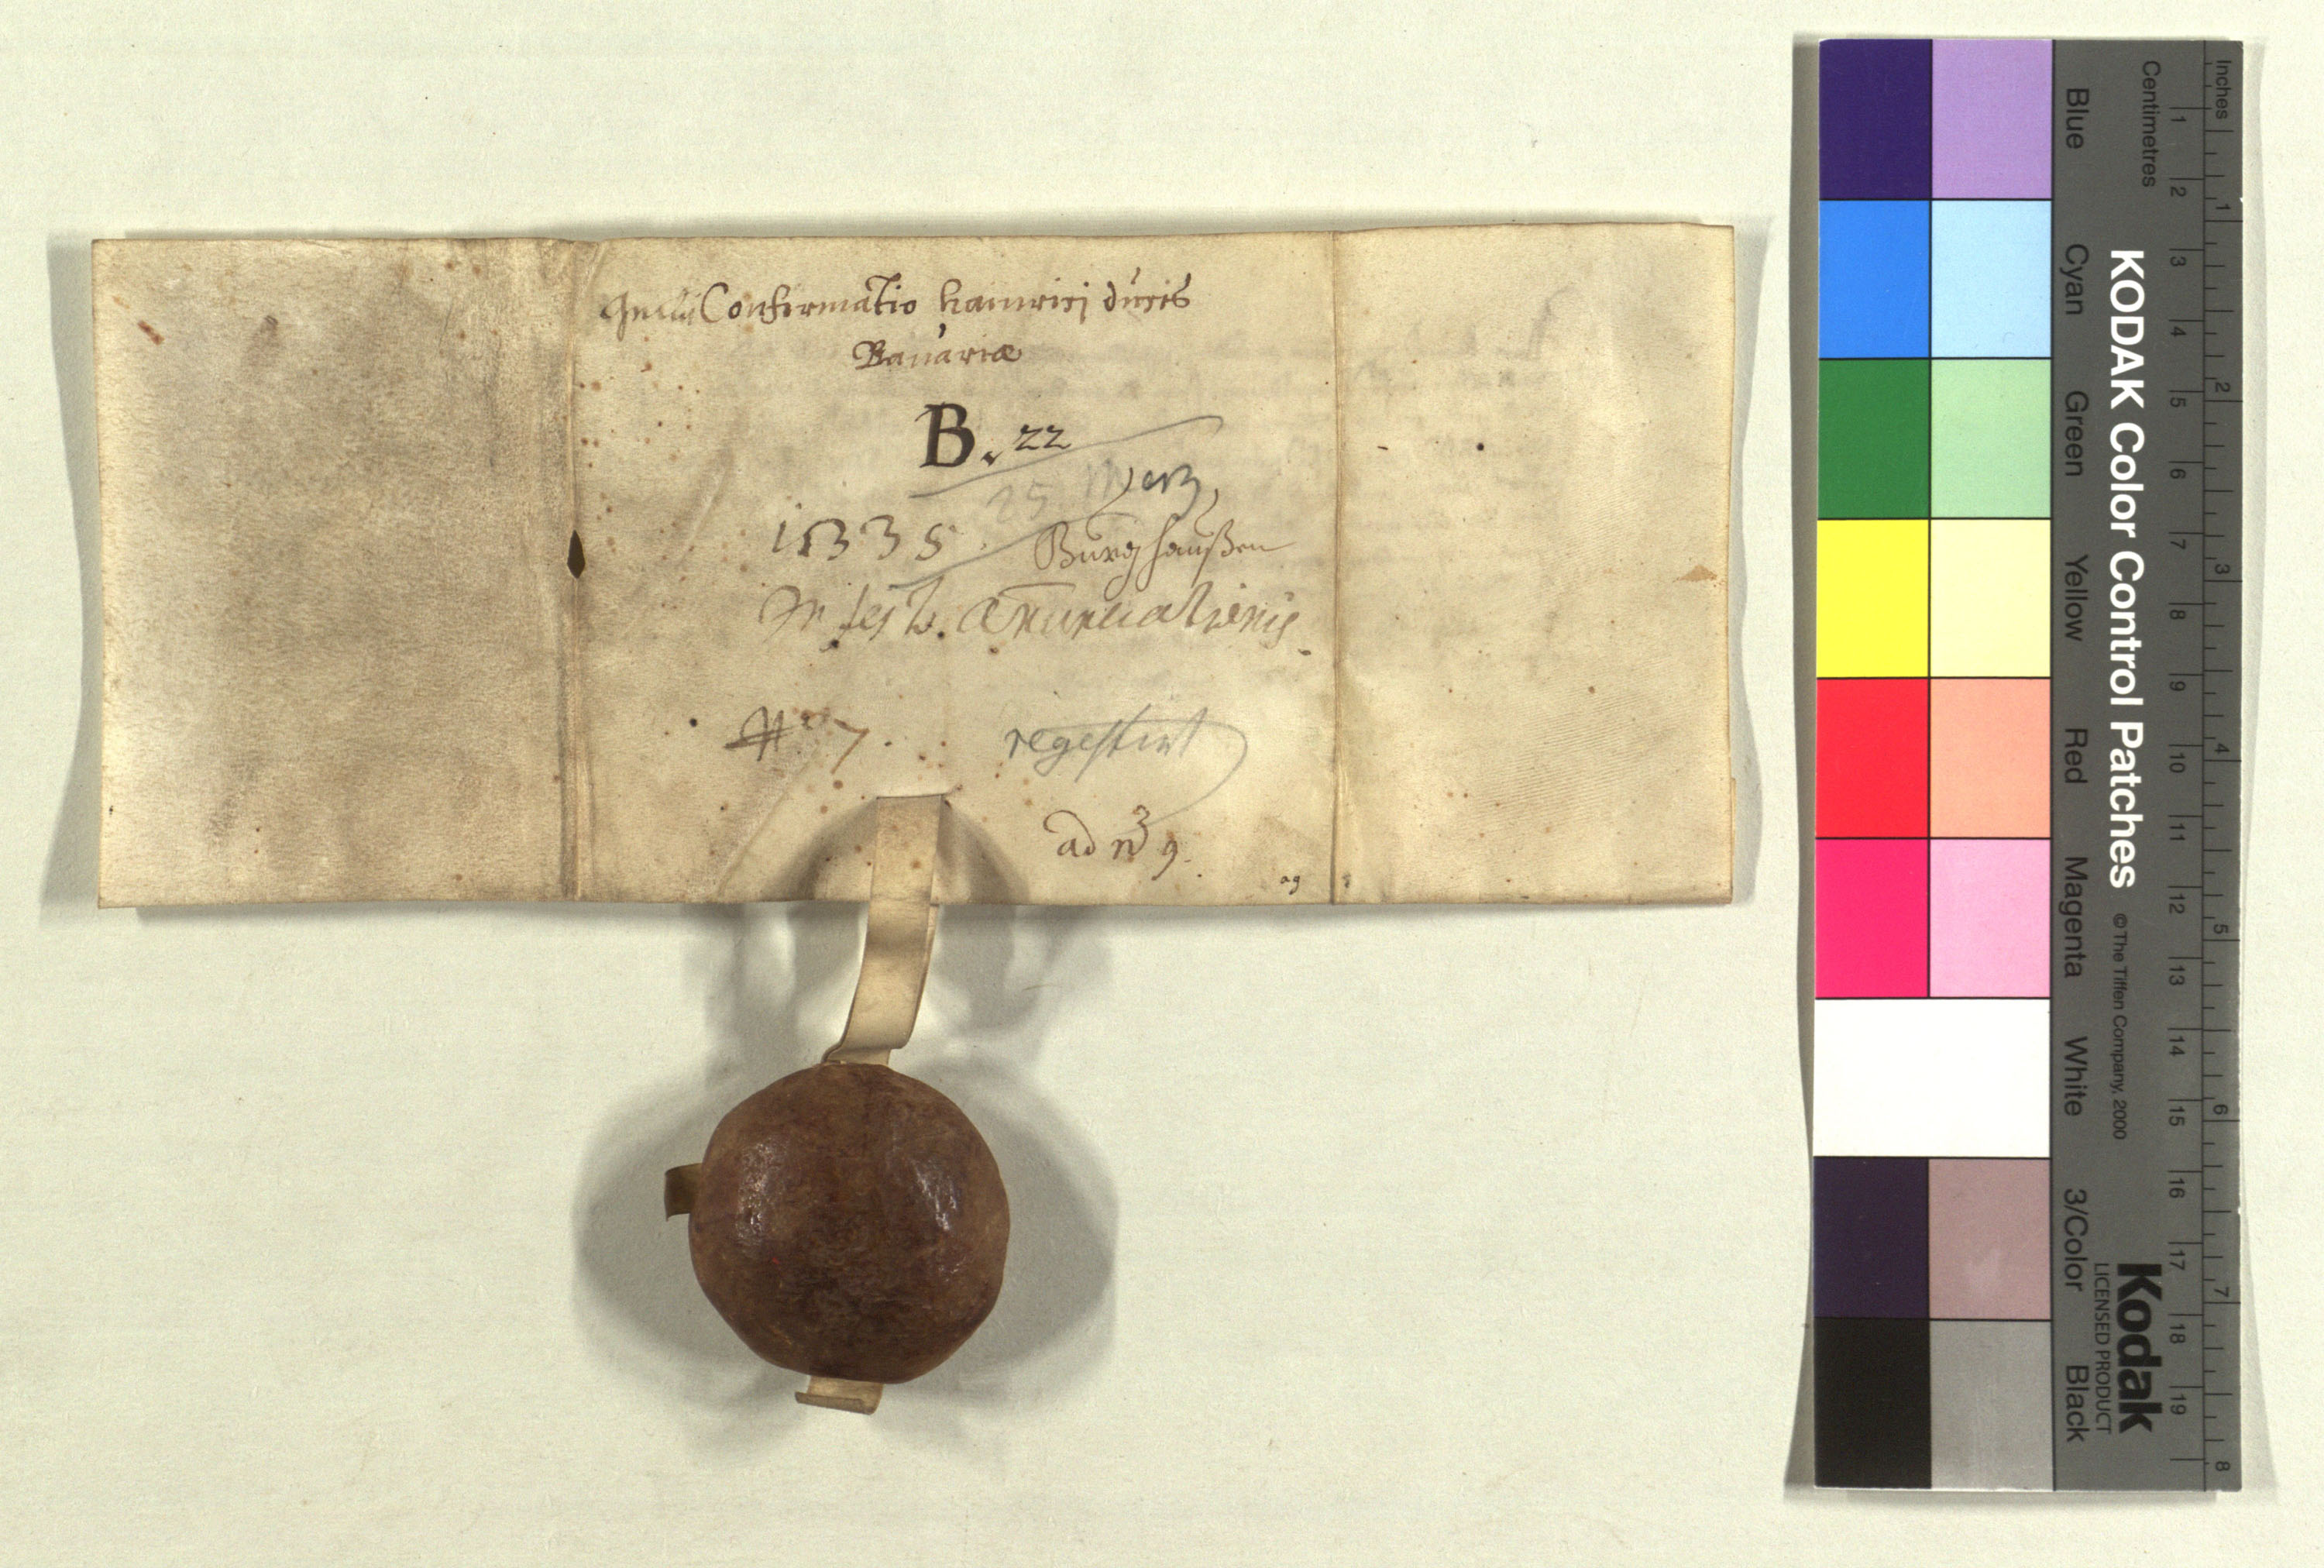 Confirmatio hainrici ducis
Bauariæ
B. 22
25 Merz
1335. Burghaußen
In fest. Añunciationis.
No 7.
regestirt
ad no 9.
ag
KODAK Color Control Patches © The Tiffen Company, 2000
Kodak
LICENSED PRODUCT
Blue Cyan Green Yellow Red Magenta White 3/Color Black
Centimetres 1 2 3 4 5 6 7 8 9 10 11 12 13 14 15 16 17 18 19
Inches 1 2 3 4 5 6 7 8